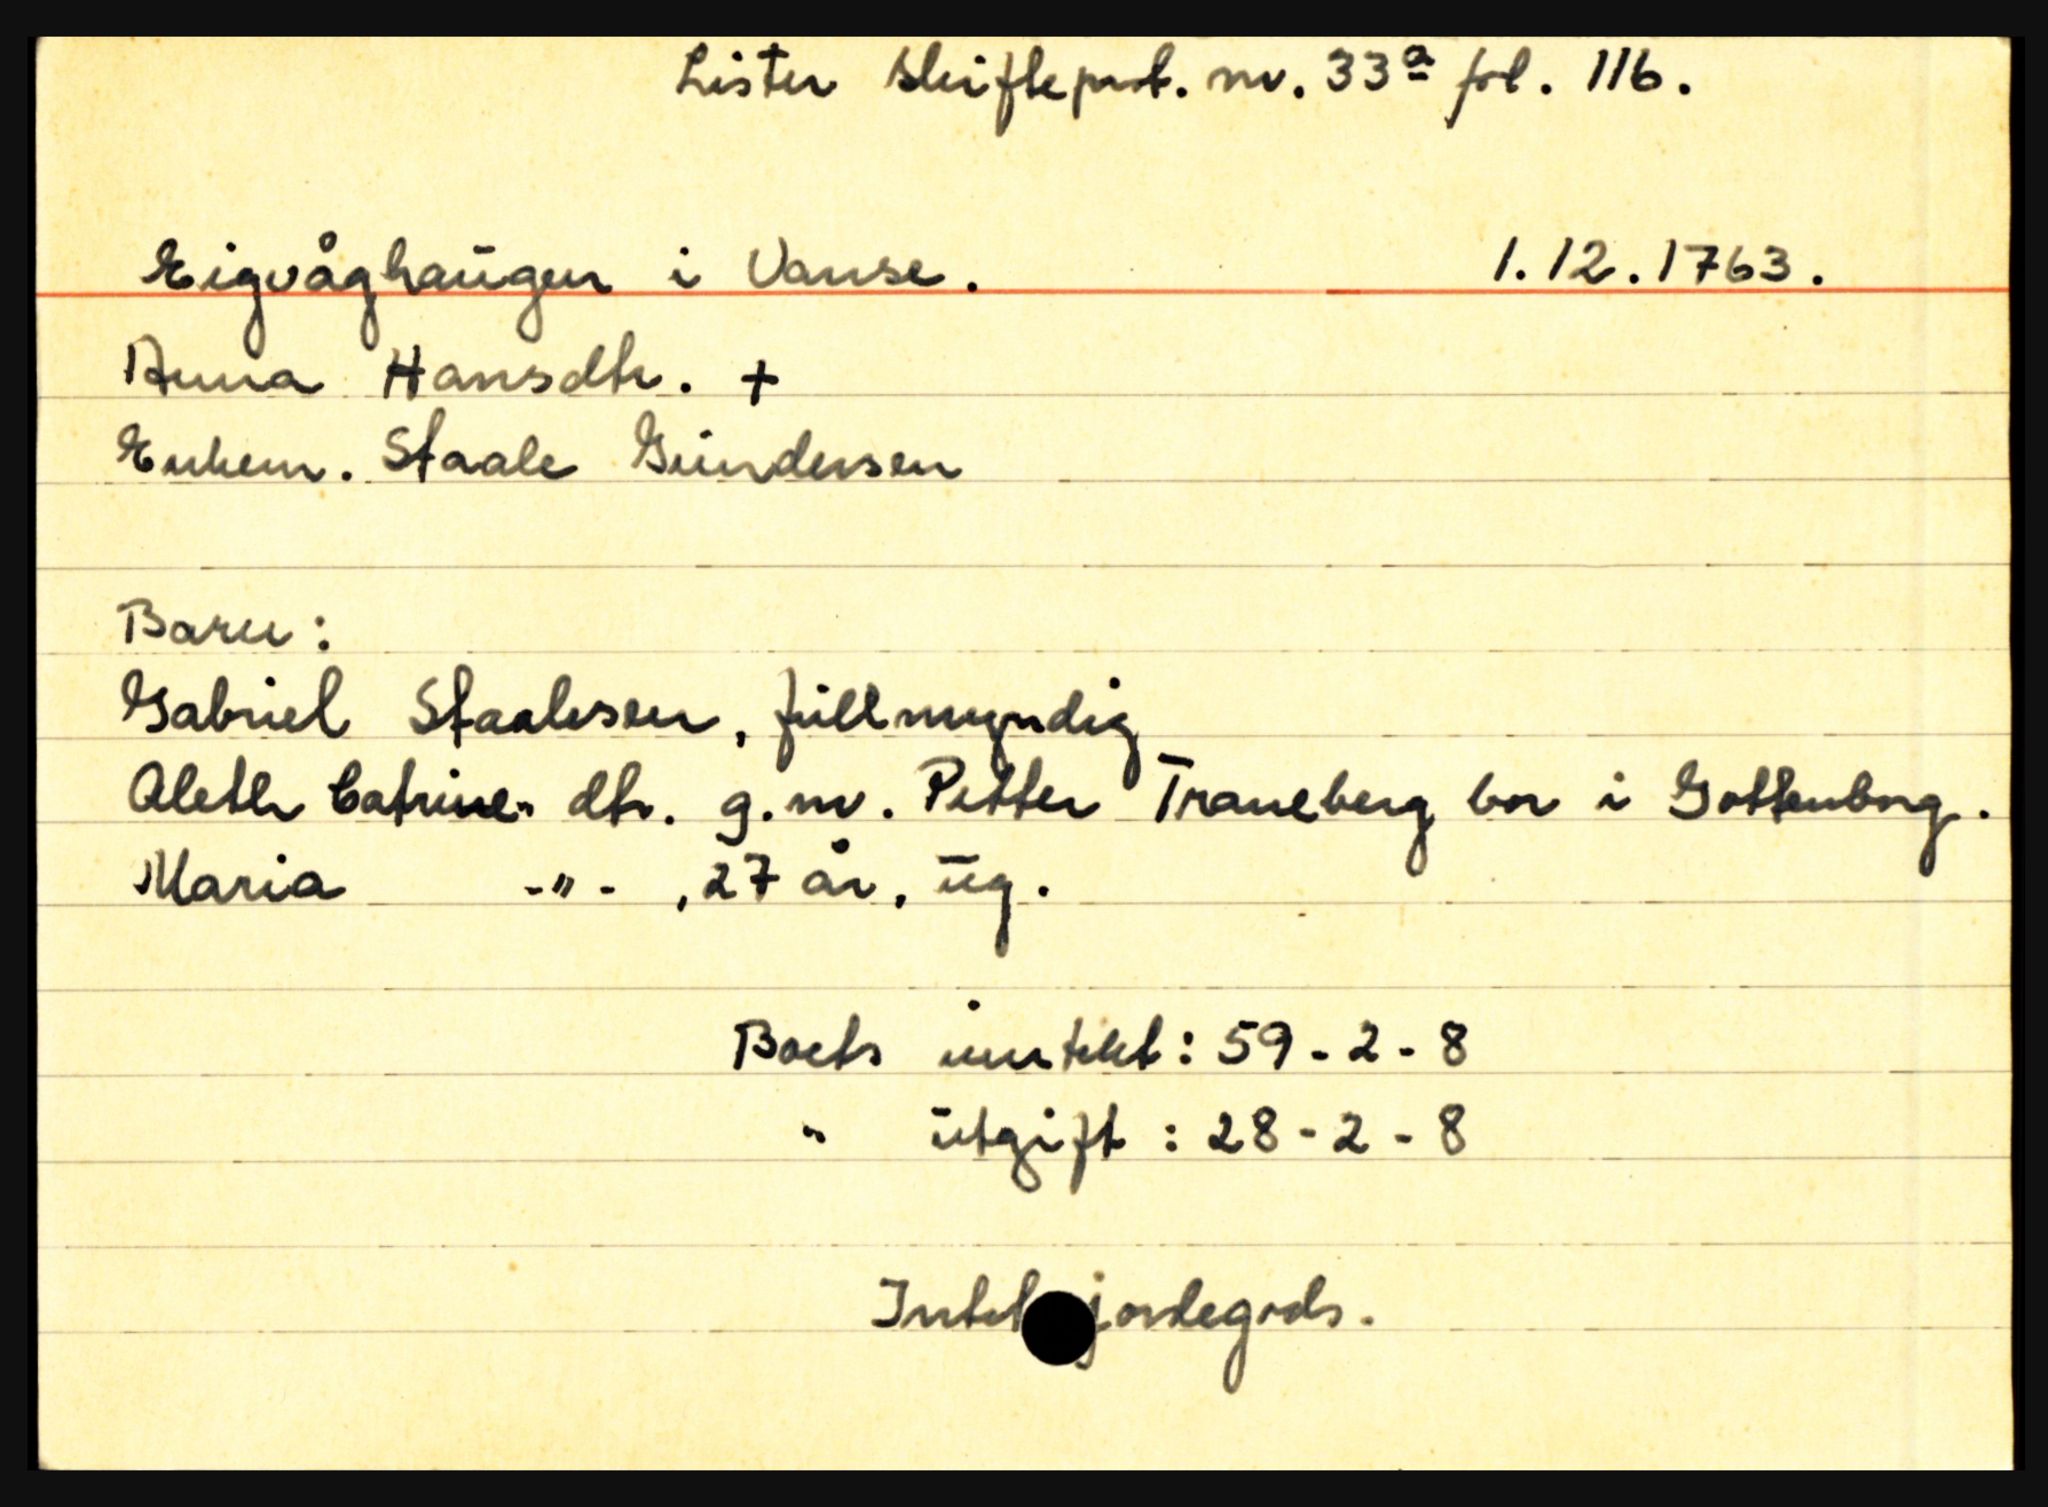 Lister skifteprot. nr. 33a fol. 116.
Eigvåghaugen i Vanse. 1.12.1763.
Anna Hansdtr. +
Enkem. Staale Gundersen
Barn:
Gabriel Staalesen, fullmyndig
Aleth Catrine " dtr. g.m. Petter Traneberg bor i Gottenborg.
Maria -"- , 27 år, ug.
Boets inntekt: 59-2-8
" utgift: 28-2-8
Intet jordegods.